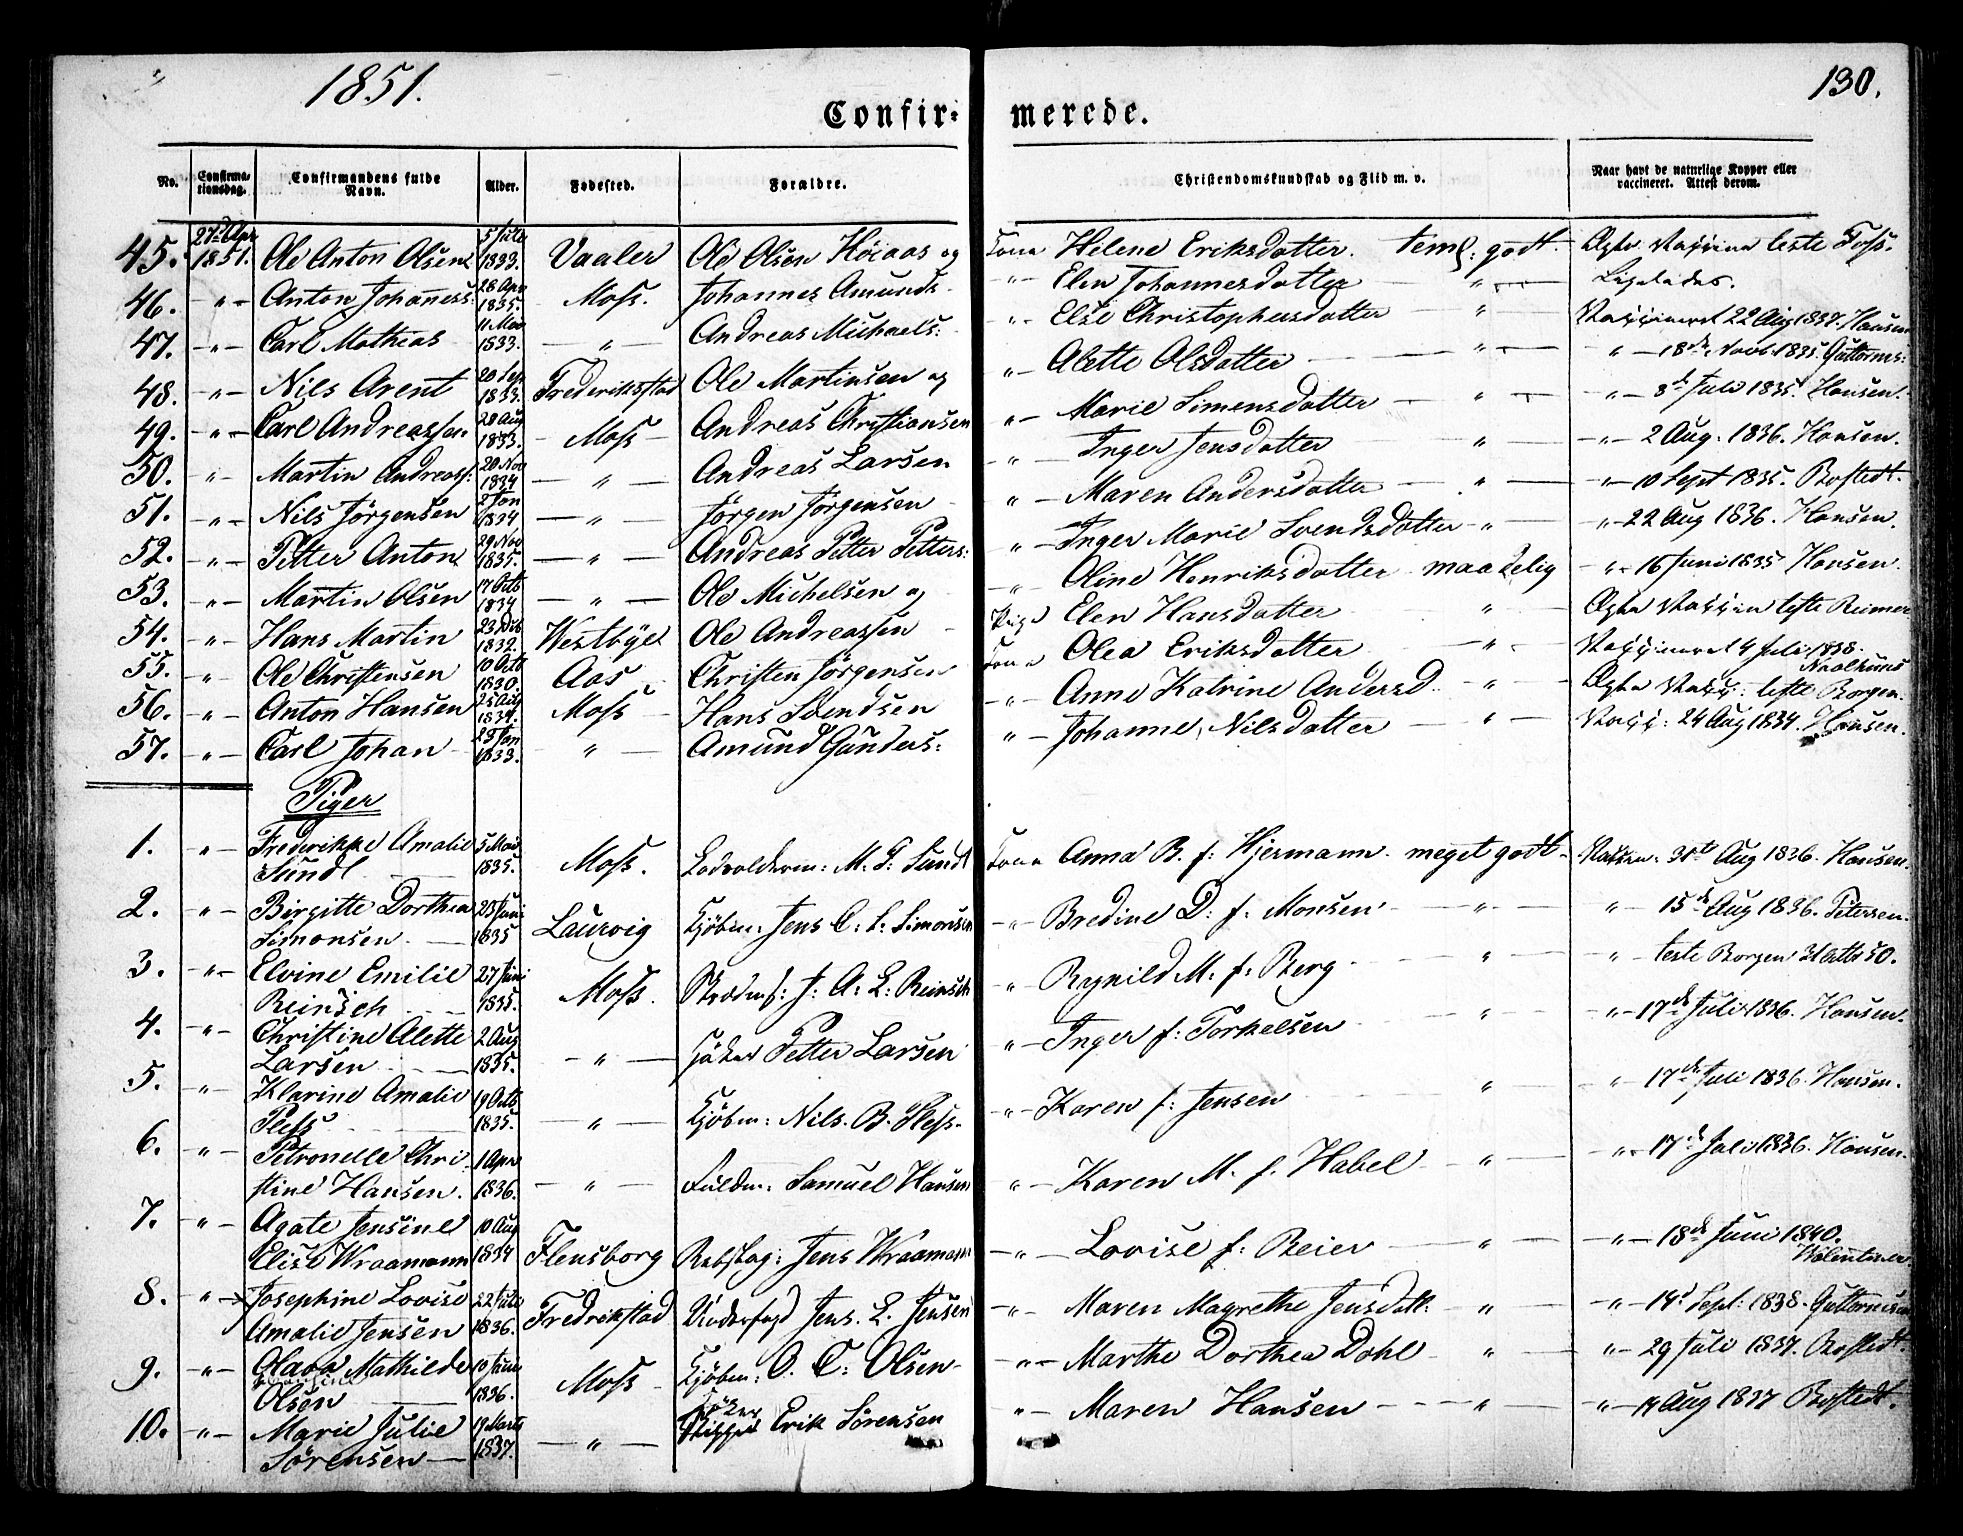 1851.
130.
Confir- merede.
No. Confirmationsdag. Confirmandens fulde Navn. Alder. Fødested. Forældre. Christendomskundskab og Flid m. v. Naar havt de naturlige Kopper eller vaccineret. Attest derom.
45. 27de Apr 1851. Ole Anton Olsen 5 Juli 1833. Vaaler Ole Olsen Høiaas og Kone Helene Eriksdatter. teml: godt. Ægte Vaxxine teste Foss.
46. " Anton Johaness: 28 Apr 1835. Moss. Johannes Amunds. " Elen Johannesdatter " Ligeledes.
47. " Carl Matheas 11 Mai 1833. " Andreas Michaels: " Else Christophersdatter " Vaxxineret 22 Aug 1837. Hansen
48. " Nils Arent 20 Sep 1833. Frederiksstad Ole Martinsen og " Alette Olsdatter " " 18de Novb. 1835. Guttorms:
49. " Carl Andreassen 28 Aug 1833. Moss Andreas Christiansen " Marie Simensdatter " " 3de Juli 1835. Hansen.
50. " Martin Andreass: 20 Nov 1834 " Andreas Larsen " Inger Jensdatter " " 2 Aug. 1836. Hansen.
51. " Nils Jørgensen 2 Jan 1834 " Jørgen Jørgensen " Maren Andersdatter " " 10 Sept 1835. Bostedt.
52. " Petter Anton 29 Nov 1835. " Andreas Petter Petters: " Inger Marie Svendsdatter " " 22 Aug 1836. Hansen.
53. " Martin Olsen 17 Octb 1834 " Ole Michelsen og " Oline Henriksdatter maadelig " 16 Juni 1835 Hansen.
54. " Hans Martin 23 Deb 1832. Westbye Ole Andreassen Pige Elen Hansdatter " Ægte Vaxxin teste Reimer
55. " Ole Christensen 10 Octb 1830. Aas Christen Jørgensen Kone Olea Eriksdatter " Vaxxineret 4 Juli 1838.
56. " Anton Hansen 25 Aug 1834. Moss Hans Svendsen " Anne Katrine Andersd. " Ægte Vaxx: teste Borgen.
57. " Carl Johan 28 Jan 1833. " Amund Gunders: " Johanne Nilsdatter " Vaxx: 24 Aug 1834. Hansen.
Piger
1. " Frederikke Amalie Sundt 5 Mai 1835. Moss. M. P: Sundt Kone Anna B. f: Hjermann. meget godt. Vaxxin: 31te Aug 1836. Hansen.
2. " Birgitte Dorthea Simonsen. 23 Juni 1835 Laurvig Kjøbm: Jens C. S. Simonsen " Bredine D: f: Monsen " " 15de Aug 1836. Petersen.
3. " Elvine Emilie Reinsch 27 Juni 1835. Moss. J: A: L: Reinsch " Rynild M: f: Berg " " teste Borgen 31 Octb 50.
4. " Christine Alette Larsen 2 Aug 1835. " Petter Larsen " Inger f: Torkelsen " " 17de Juli 1836. Hansen.
5. " Klarine Amalie Pless 19 Octb 1835. " Kjøbm: Nils. B. Pless. " Karen f: Jensen " " 17de Juli 1836. Hansen.
6. " Petronelle Christine Hansen. 1 Apr 1836. " Fuldm: Samuel Hansen " Karen M. f. Habel " " 17de Juli 1836. Hansen.
7. " Agate Jensine Elise Wraamann 10 Aug 1834 Flensborg Rebslag: Jens Wraamann " Lovise f: Beier " " 18de Juni 1840.
8. " Josephine Lovise Amalie Jensen 22 Juli 1836. Fredrikstad Underfogd Jens. L. Jensen " Maren Magrethe Jensdatt: " " 14de Sept: 1838. Guttormsen
9. " Olava Mathilde Olsen 10 Juni 1836. Moss Kjøbm: O. C: Olsen " Marthe Dorthea Dohl " " 29 Juli 1837. Bostedt.
10. " Marie Julie Sørensen 19 Marts 1837. " Skipper Erik Sørensen " Maren Hansen " " 14 Aug 1837 Bostedt.